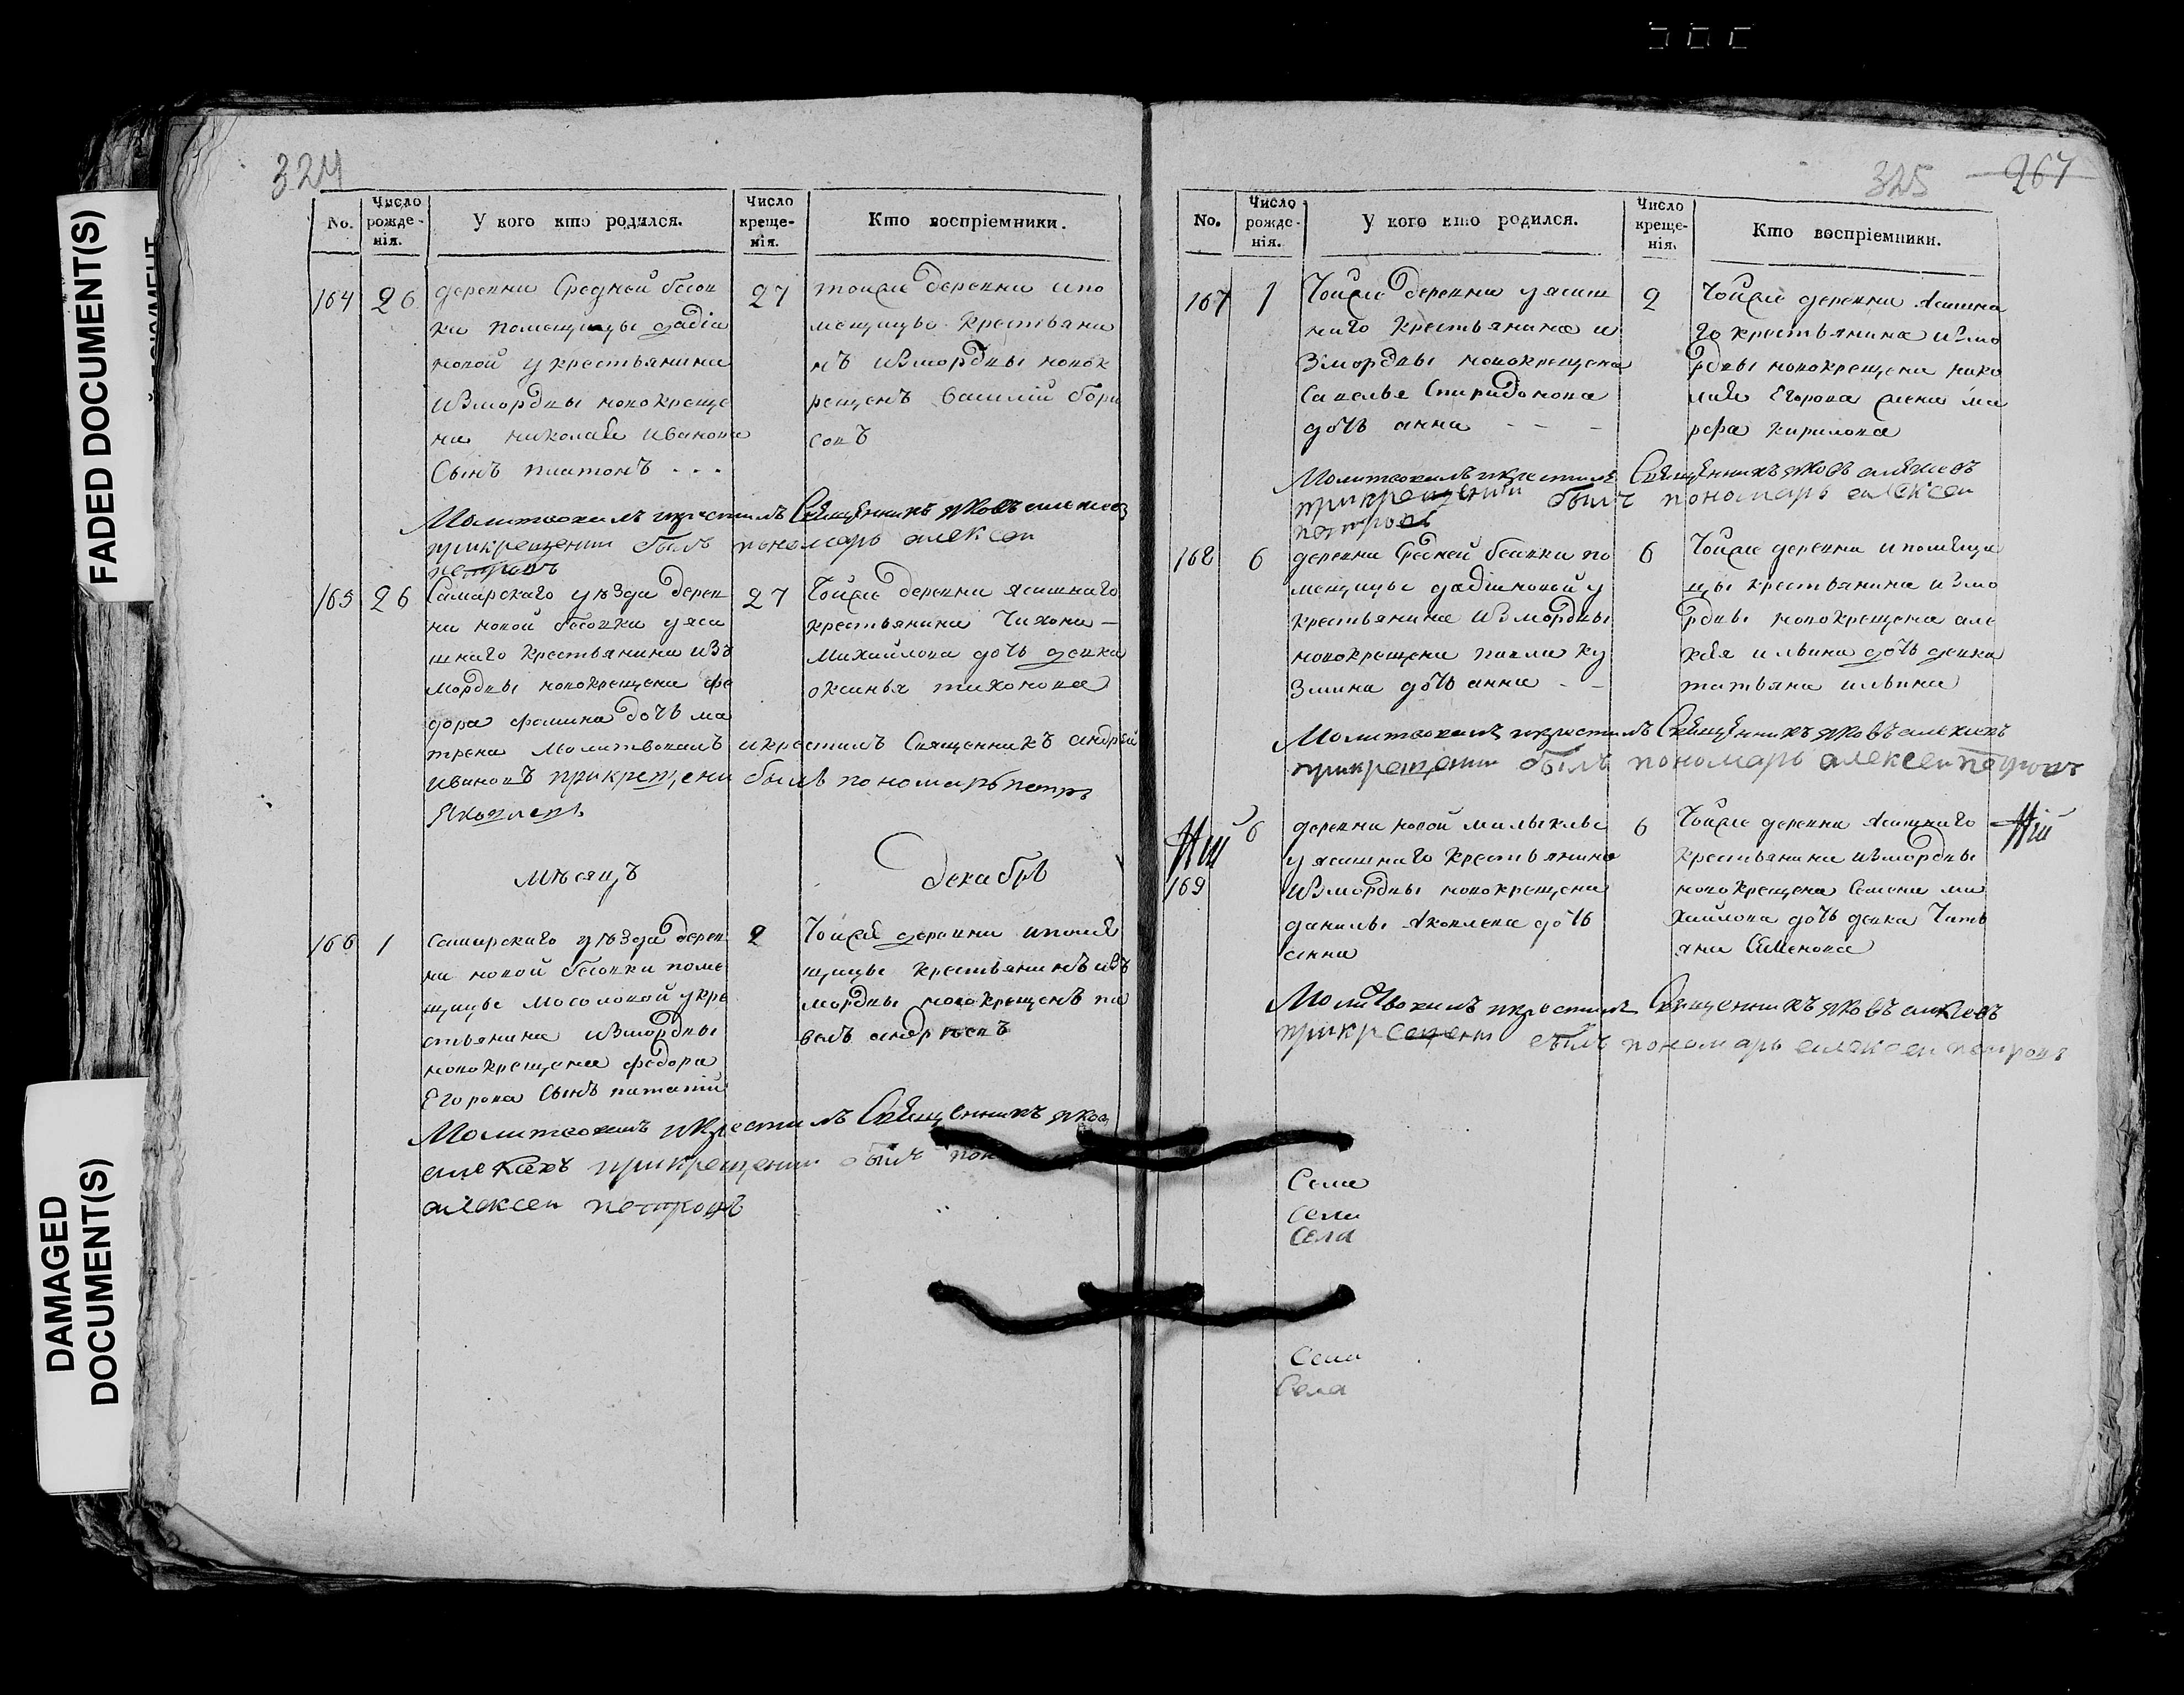 FADED DOCUMENT(S)
DAMAGED
DOCUMENT(S)
324
No.
Число
рожде-
нія.
У кого кто родился.
Число
креще-
нія.
Кто воспріемники.
164
26
деревни Средней бесов
ки помещицы
новой у крестьянина
Измордвы новокреще
на николая иванова
Сынъ платонъ
27
тойже деревни ипо
мещицы крестьяни
нъ измордвы новок
рещенъ василій бори
совъ
Молитвовалъ икрестилъ Священникъ яковъ
прикрещении былъ пономарь алексеи
петровъ
165
26
Самарскаго уѣзда дерев
ни новой бесовки уяса
шнаго крестьянина изъ
мордвы новокрещена фе
дора фомина дочь ма
трена Молитвовалъ икрестилъ Священникъ андрей
ивановъ прикрещени былъ пономарь петръ
Яковлевъ
27
Тойже деревни ясашнаго
крестьянина Тихона
Михайлова дочь девка
оксинья тихонова
мѣсяцъ
декабрь
166
1
Самарскаго уѣзда дерев
ни новой бесовки поме
щицы мосоловой укре
стьянина измордвы
новокрещена федора
Егорова Сынъ
2
Тойже деревни
щицы крестьянинъ изъ
мордвы новокрещенъ па
велъ андреевъ
Молитвовалъ икрестилъ Священникъ
прикрещении былъ
алексеи петровъ
325
267
No.
Число
рожде-
нія.
У кого кто родился.
Число
креще-
нія.
Кто воспріемники.
167
1
Тойже деревни уясаш
наго крестьянина и
змордвы новокрещена
Савелья Спиридонова
дочь анна
2
Тойже деревни ясашна
го крестьянина измо
рдвы новокрещена нико
лая Егорова жена ма
рфа кирилова
Молитвовалъ икрестилъ Священникъ яковъ
прикрещении былъ пономарь алексеи
петровъ
168
6
деревни Средней бесовки по
мещицы у
крестьянина Измордвы
новокрещена павла ку
змина дочь анна
6
Тойже деревни ипомещи
цы крестьянина измо
рдвы новокрещена але
ильина дочь девка
татьяна ильина
Молитвовалъ икрестилъ Священникъ яковъ
прикрещении былъ пономарь алексеи петровъ
169
6
деревни новой малыклы
уясашнаго крестьянина
Измордвы новокрещена
данилы Яковлева дочь
анна
6
Тойже деревни Ясашнаго
крестьянина измордвы
новокрещена Семена ми
хайлова дочь девка Тать
яна Семенова
Молитвовалъ икрестилъ Священникъ яковъ
прикрещени былъ пономарь алексеи петровъ
Села
Села
Села
Села
Села